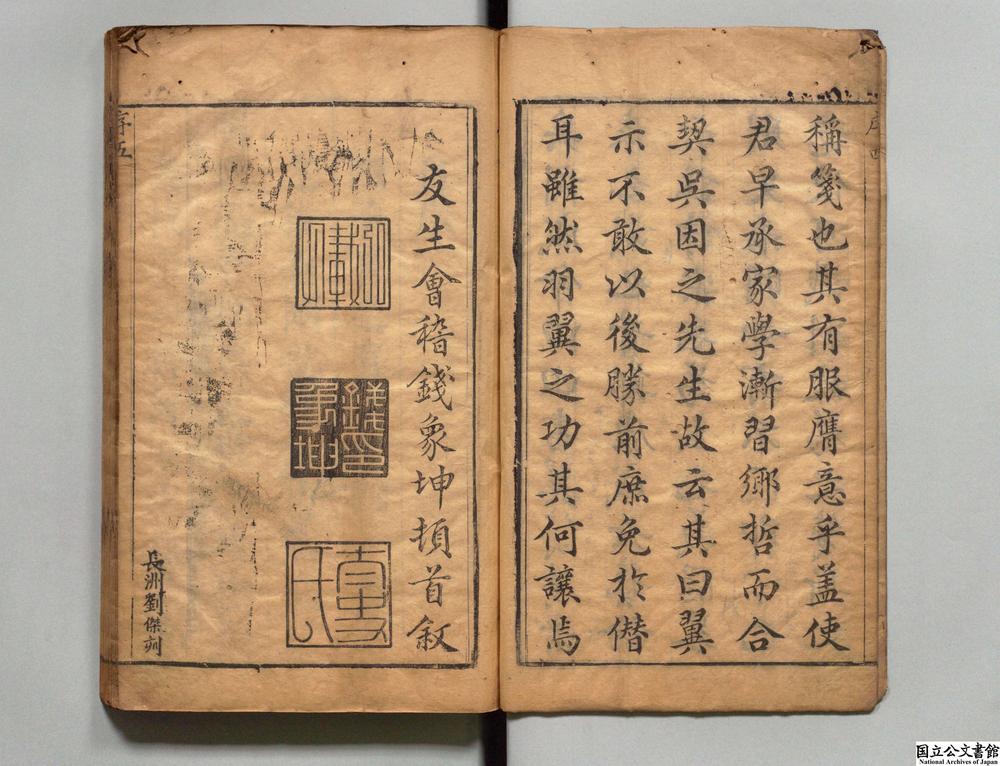 稱箋也其有服膺意乎盖使
君早承家學漸習鄉哲而合
契吳因之先生故云其曰翼
示不敢以後勝前庶免於僭
耳雖然羽翼之功其何讓焉
序四
友生會稽錢象坤頓首敘
錢象坤印
太史氏
長洲劉傑刻
序五
国立公文書館
National Archives of Japan